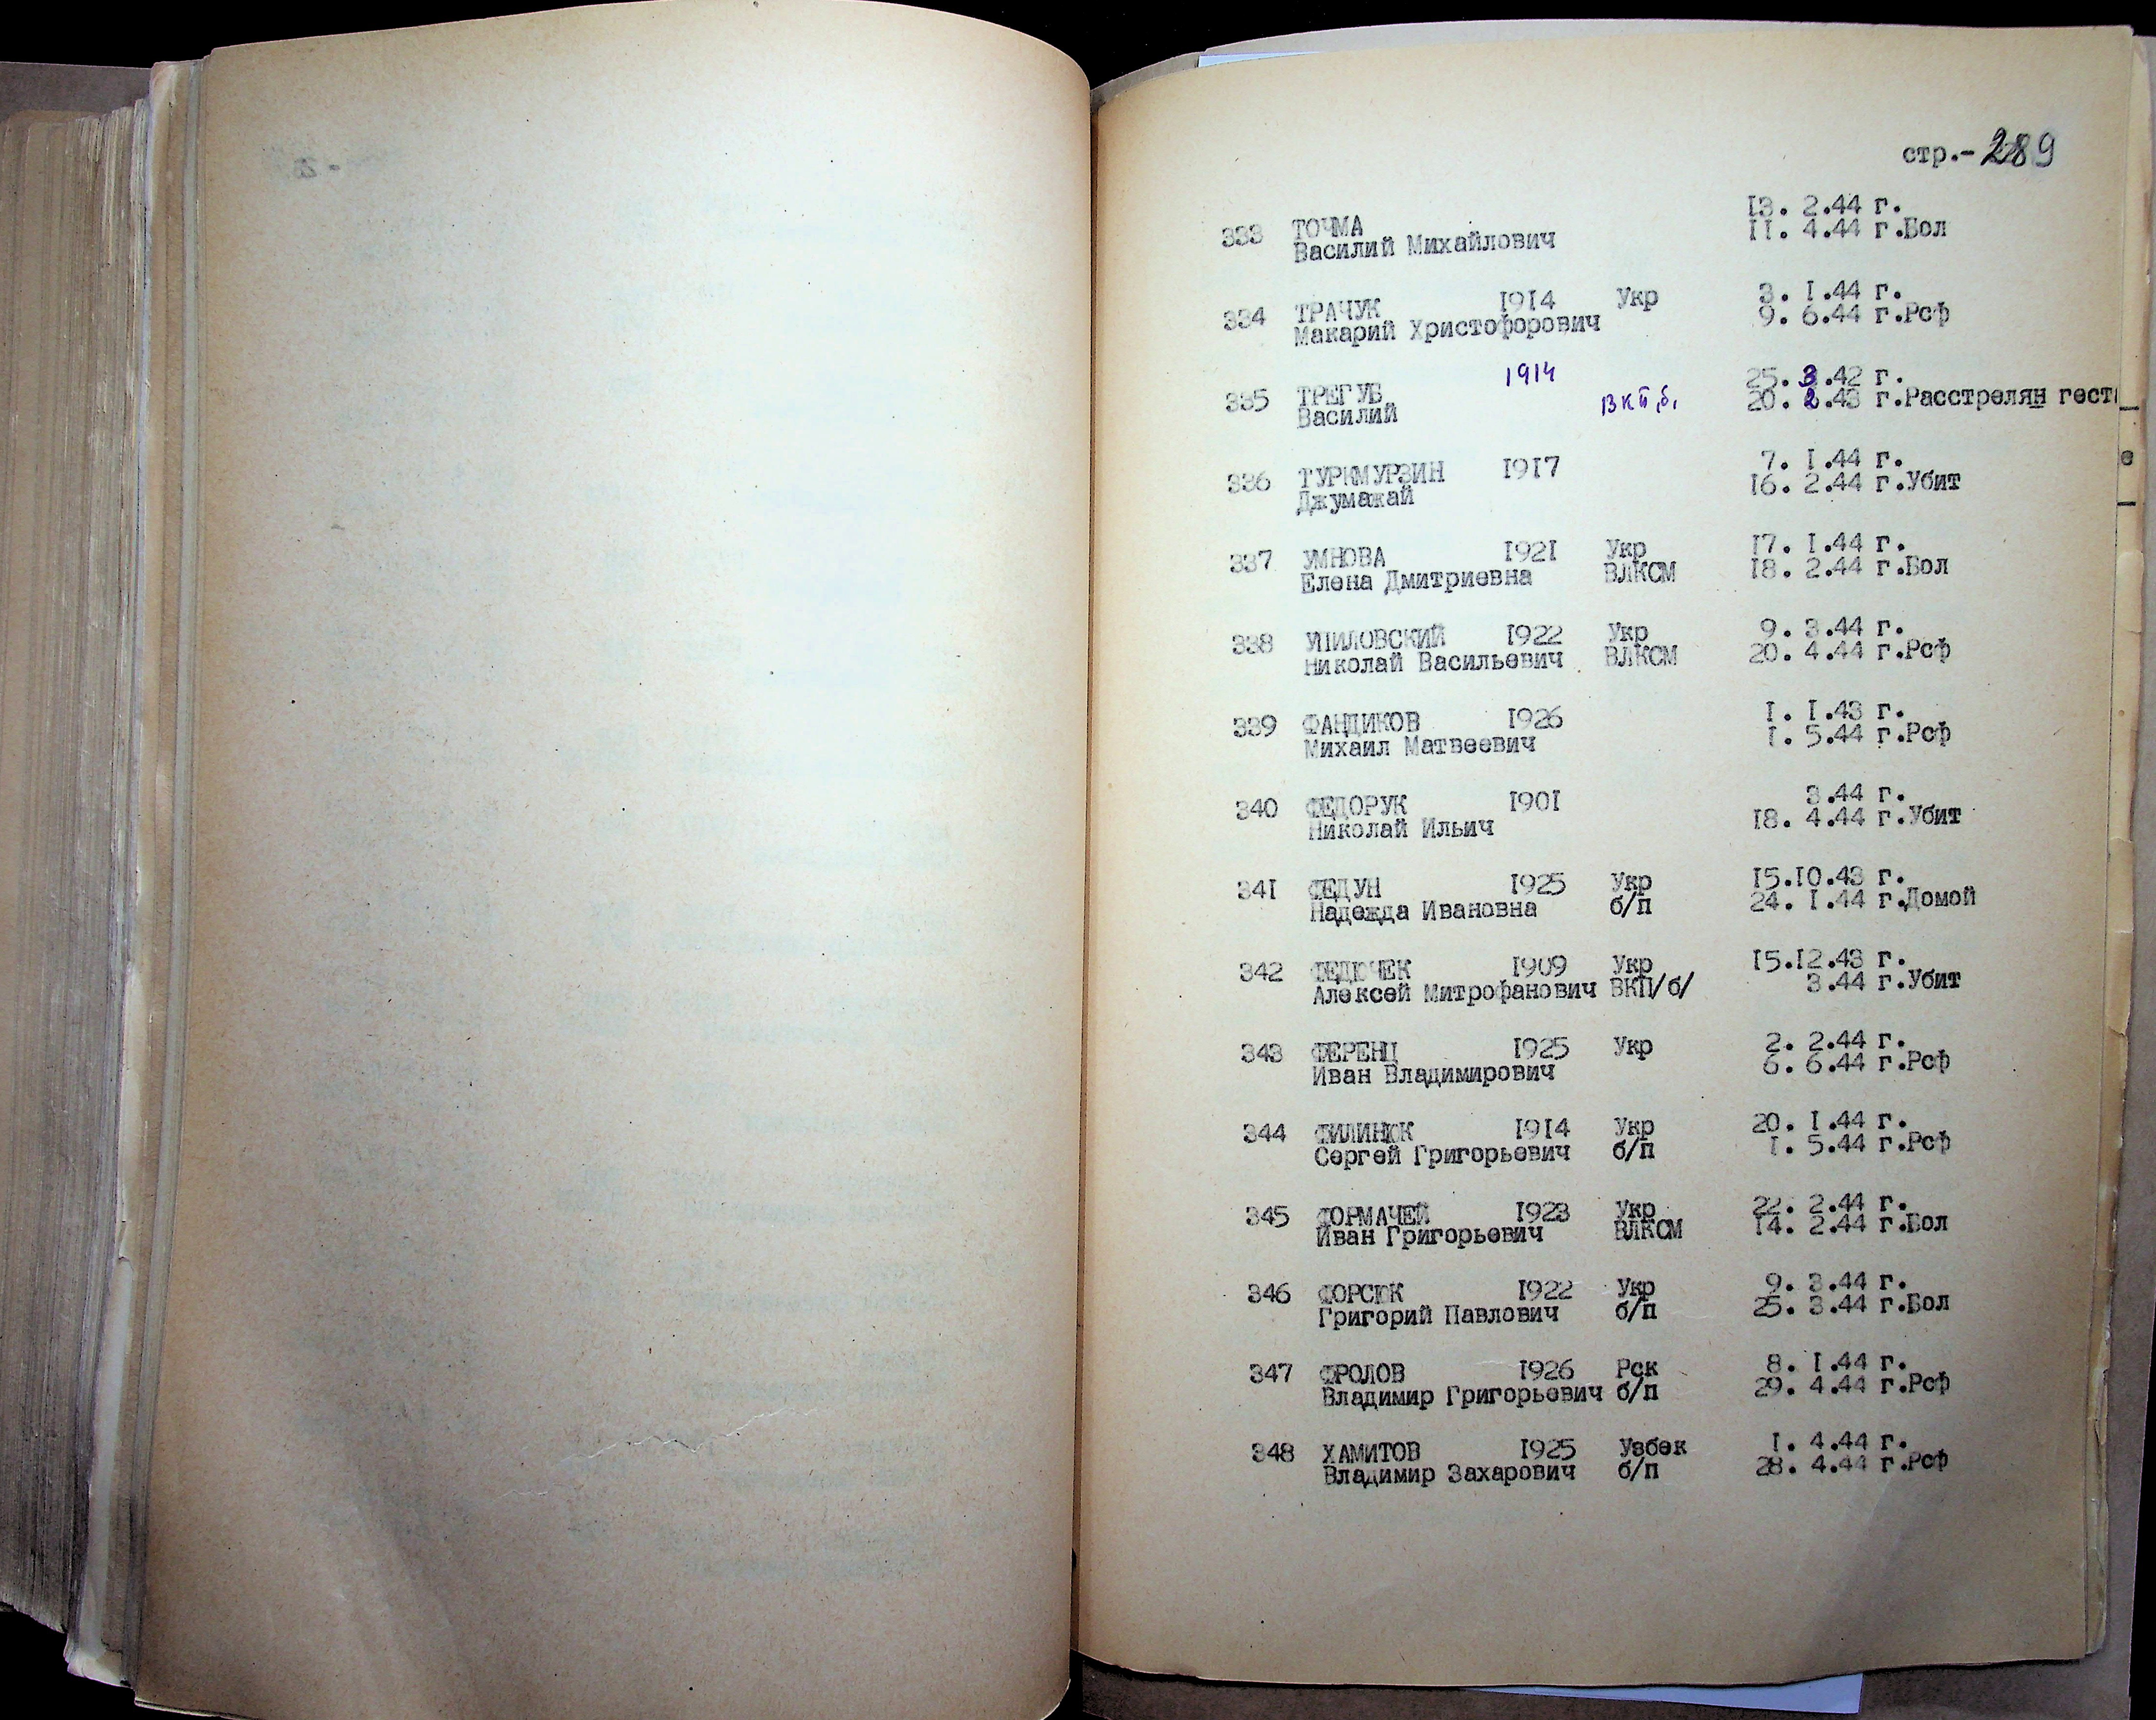 стр.-289
13. 2.44 г.
333 ТОЧМА 11. 4.44 г.Бол
Василий Михайлович
334 ТРАЧУК 1914 Укр 3. 1.44 г.
Макарий Христофорович 9. 6.44 г.Рсф
335 ТРЕГУБ 1914 25. 3.42 г.
Василий вкп,б, 20. 2.43 г.Расстрелян гест
336 ТУРКМУРЗИН 1917 7. 1.44 г.
Джумажай 16. 2.44 г.Убит
337 УМНОВА 1921 Укр 17. 1.44 г.
Елена Дмитриевна ВЛКСМ 18. 2.44 г.Бол
338 УПИЛОВСКИЙ 1922 Укр 9. 3.44 г.
Николай Васильевич ВЛКСМ 20. 4.44 г.Рсф
339 ФАНДИКОВ 1926 1. 1.43 г.
Михаил Матвеевич 1. 5.44 г.Рсф
340 ФЕДОРУК 1901 3.44 г.
Николай Ильич 18. 4.44 г.Убит
341 ФЕДУН 1925 Укр 15.10.43 г.
Надежда Ивановна б/п 24. 1.44 г.Домой
342 ФЕДЮЧЕК 1909 Укр 15.12.43 г.
Алексей Митрофанович ВКП/б/ 3.44 г.Убит
343 ФЕРЕНЦ 1925 Укр 2. 2.44 г.
Иван Владимирович 6. 6.44 г.Рсф
344 ФИЛИНЮК 1914 Укр 20. 1.44 г.
Сергей Григорьевич б/п 1. 5.44 г.Рсф
345 ФОРМАЧЕЙ 1923 Укр 22. 2.44 г.
Иван Григорьевич ВЛКСМ 14. 2.44 г.Бол
346 ФОРСЮК 1922 Укр 9. 3.44 г.
Григорий Павлович б/п 25. 3.44 г.Бол
347 ФРОЛОВ 1926 Рск 8. 1.44 г.
Владимир Григорьевич б/п 29. 4.44 г.Рсф
348 ХАМИТОВ 1925 Узбек 1. 4.44 г.
Владимир Захарович б/п 28. 4.44 г.Рсф